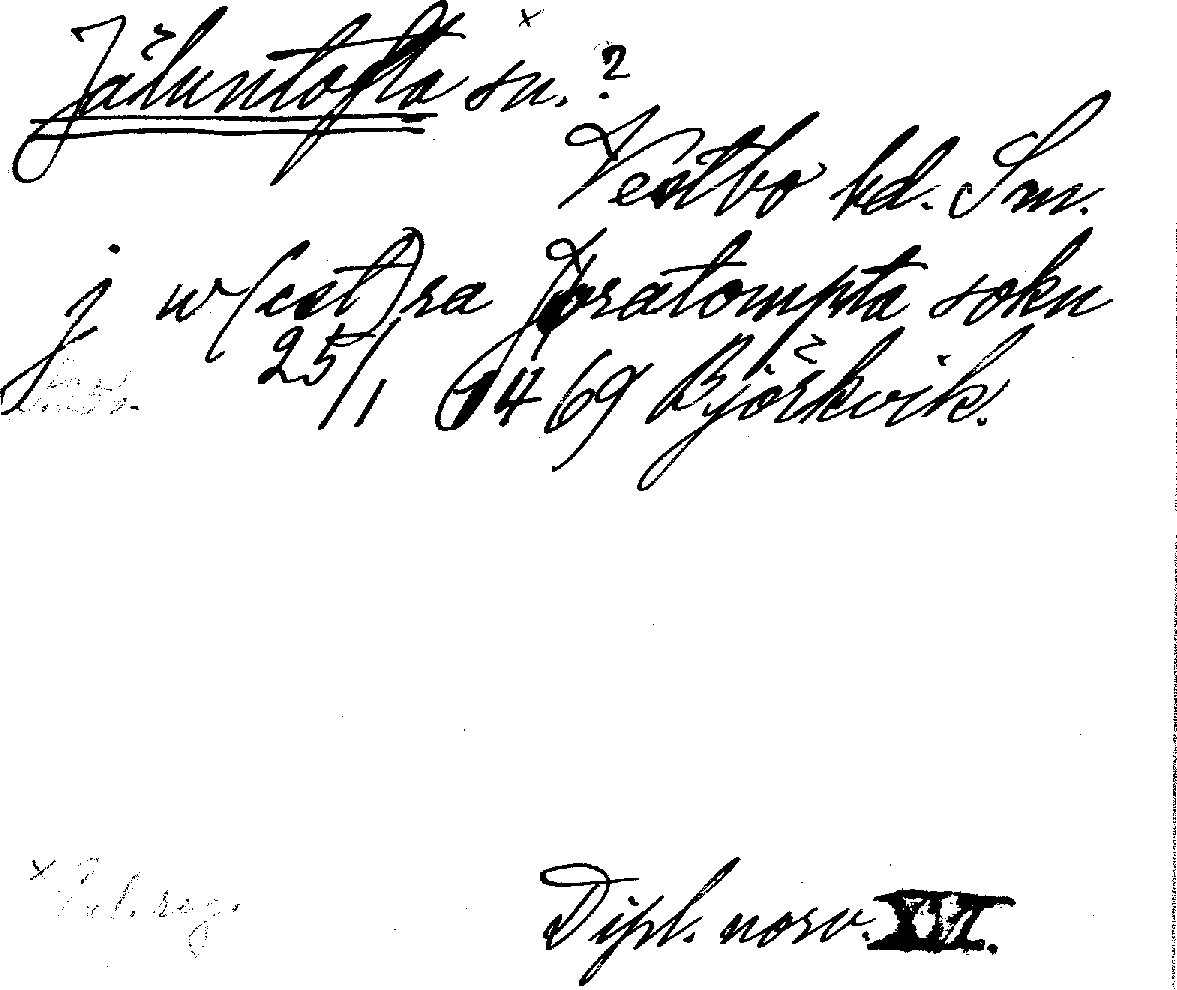 Jäluntofta sn. ?
Vestbo hd. Sm.
j w(est)ra Joratompta sokn
25/1 1469 Björkvik.
x
reg.
Dipl. norv. XVI.